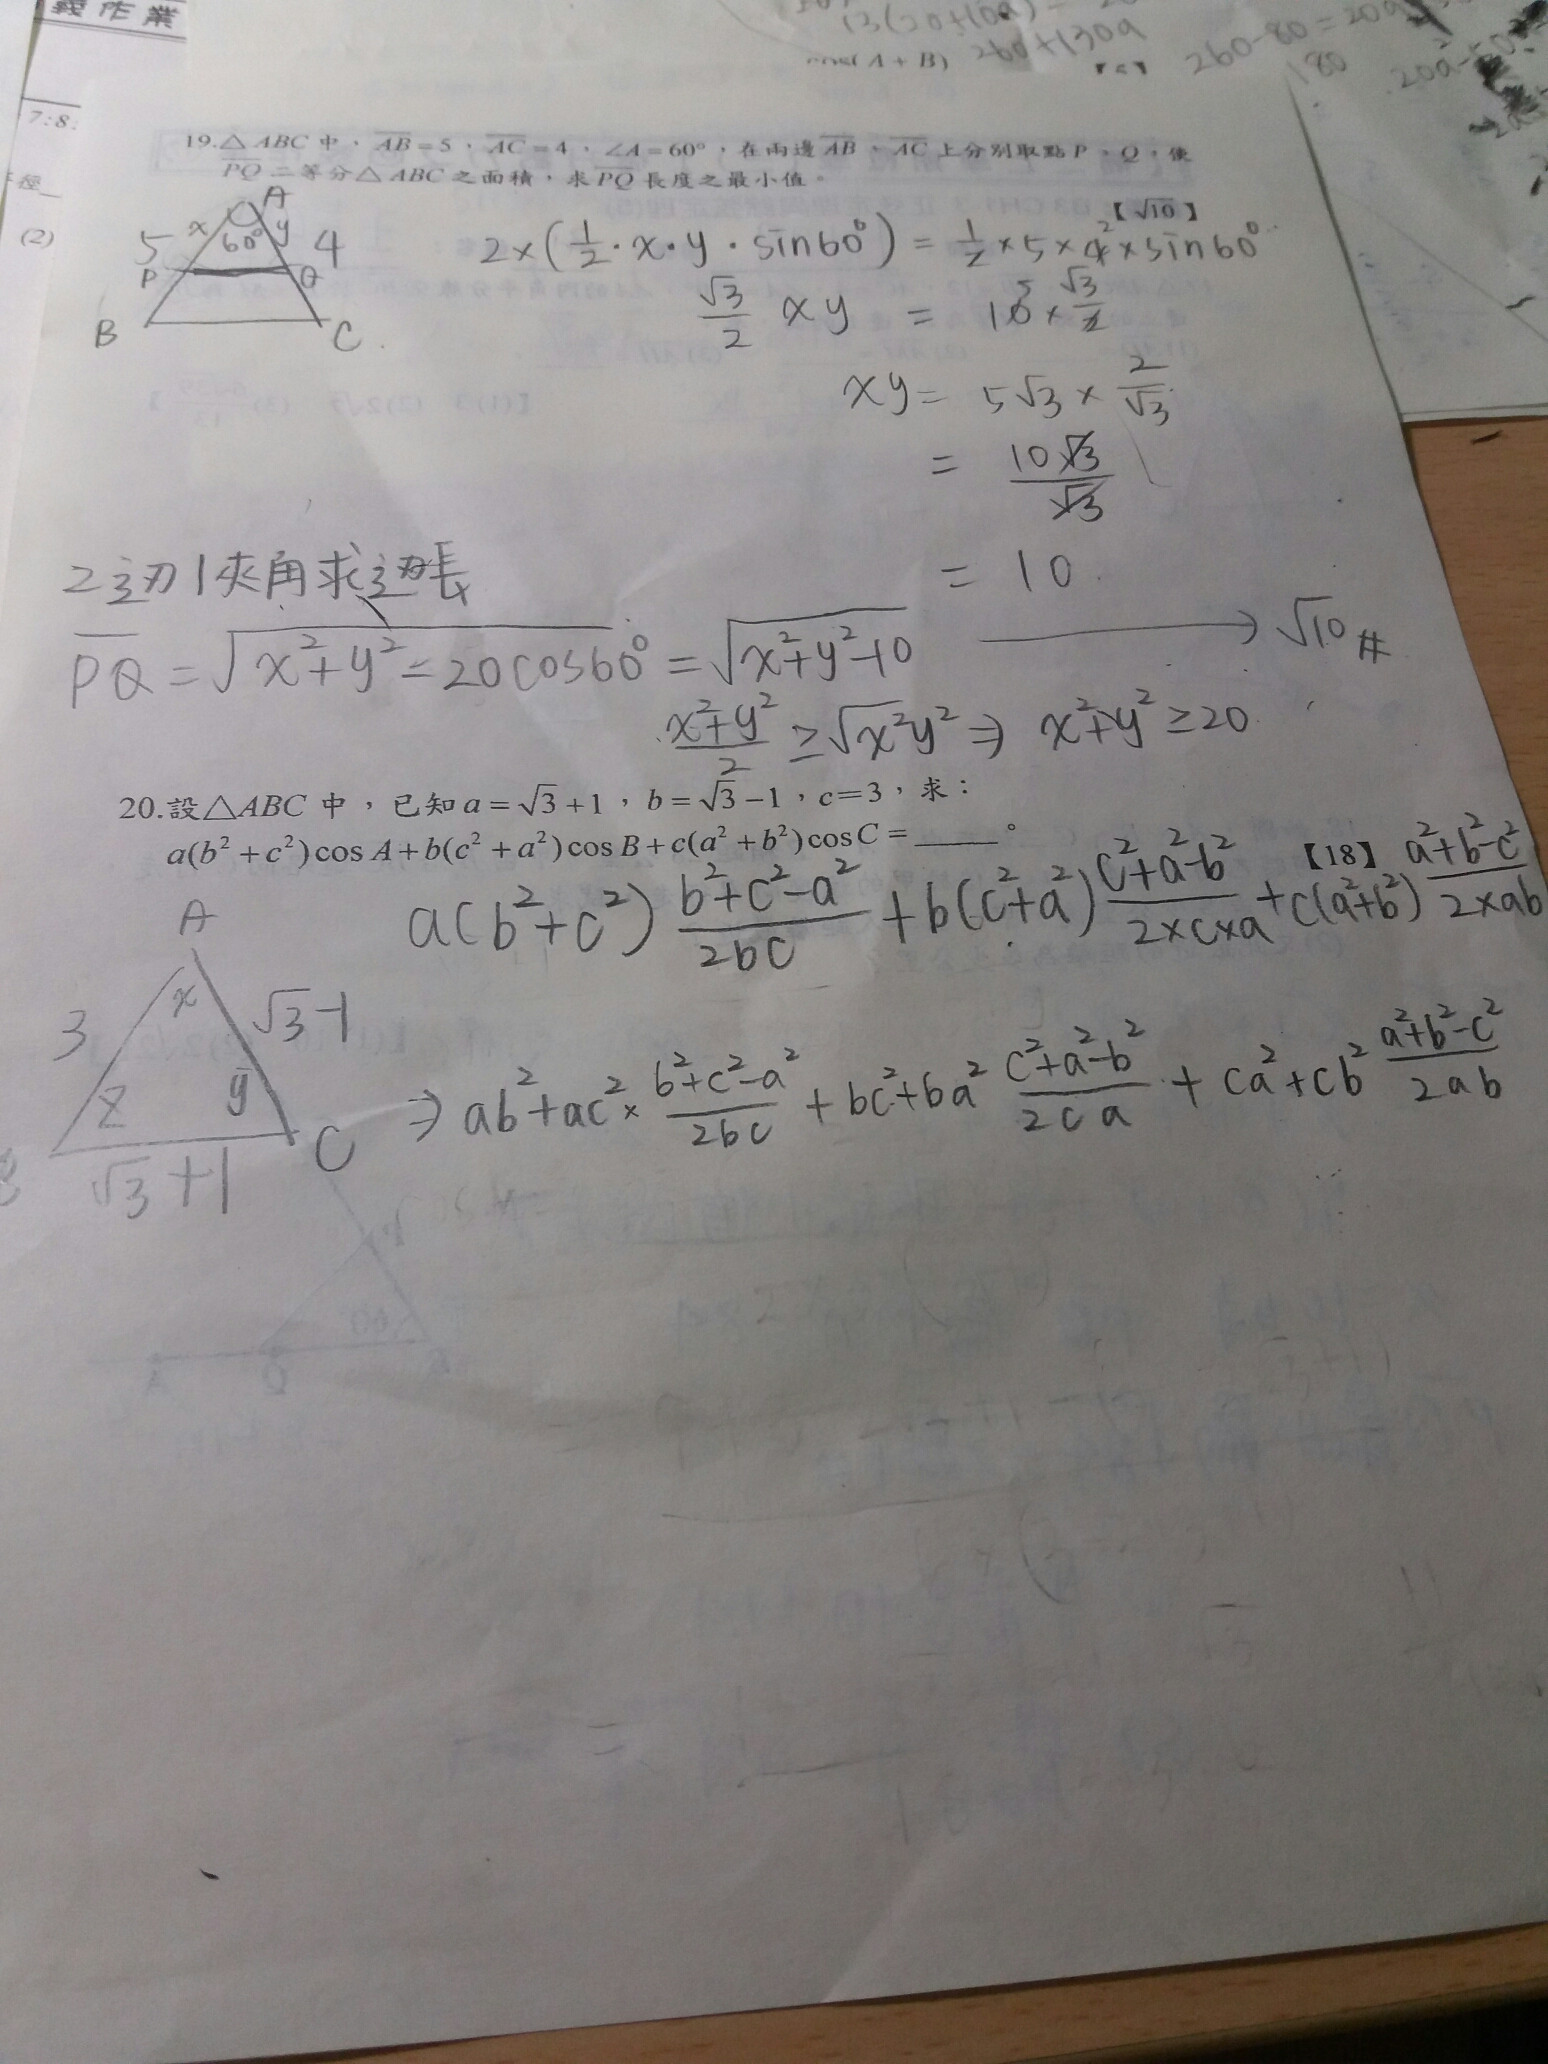 義作業
13(20+10a)=
260+130a
cos(A+B)
260-80=20a
180
7:8:
(2)
19.△ABC 中，AB=5，AC=4，∠A=60°，在兩邊AB、AC上分別取點P、Q，使
PQ二等分△ABC之面積，求PQ長度之最小值。
【√10】
A
x
y
5
60°
4
P
Q
B
C
2×(1/2·x·y·sin60°)=1/2×5×4×sin60°
√3/2 xy = 10×√3/2
xy = 5√3×2/√3
= 10√3/√3
= 10
2边1夾角求边長
PQ=√x²+y²-20cos60°=√x²+y²-10 → √10#
x²+y²/2 ≥ √x²y² ⇒ x²+y²≥20
20.設△ABC 中，已知a=√3+1，b=√3-1，c=3，求：
a(b²+c²)cosA+b(c²+a²)cosB+c(a²+b²)cosC=____。
【18】
a(b²+c²) b²+c²-a²/2bc + b(c²+a²) c²+a²-b²/2×c×a + c(a²+b²) a²+b²-c²/2×ab
A
3
x
√3-1
z
y
C
√3+1
⇒ ab²+ac²× b²+c²-a²/2bc + bc²+ba² c²+a²-b²/2ca + ca²+cb² a²+b²-c²/2ab